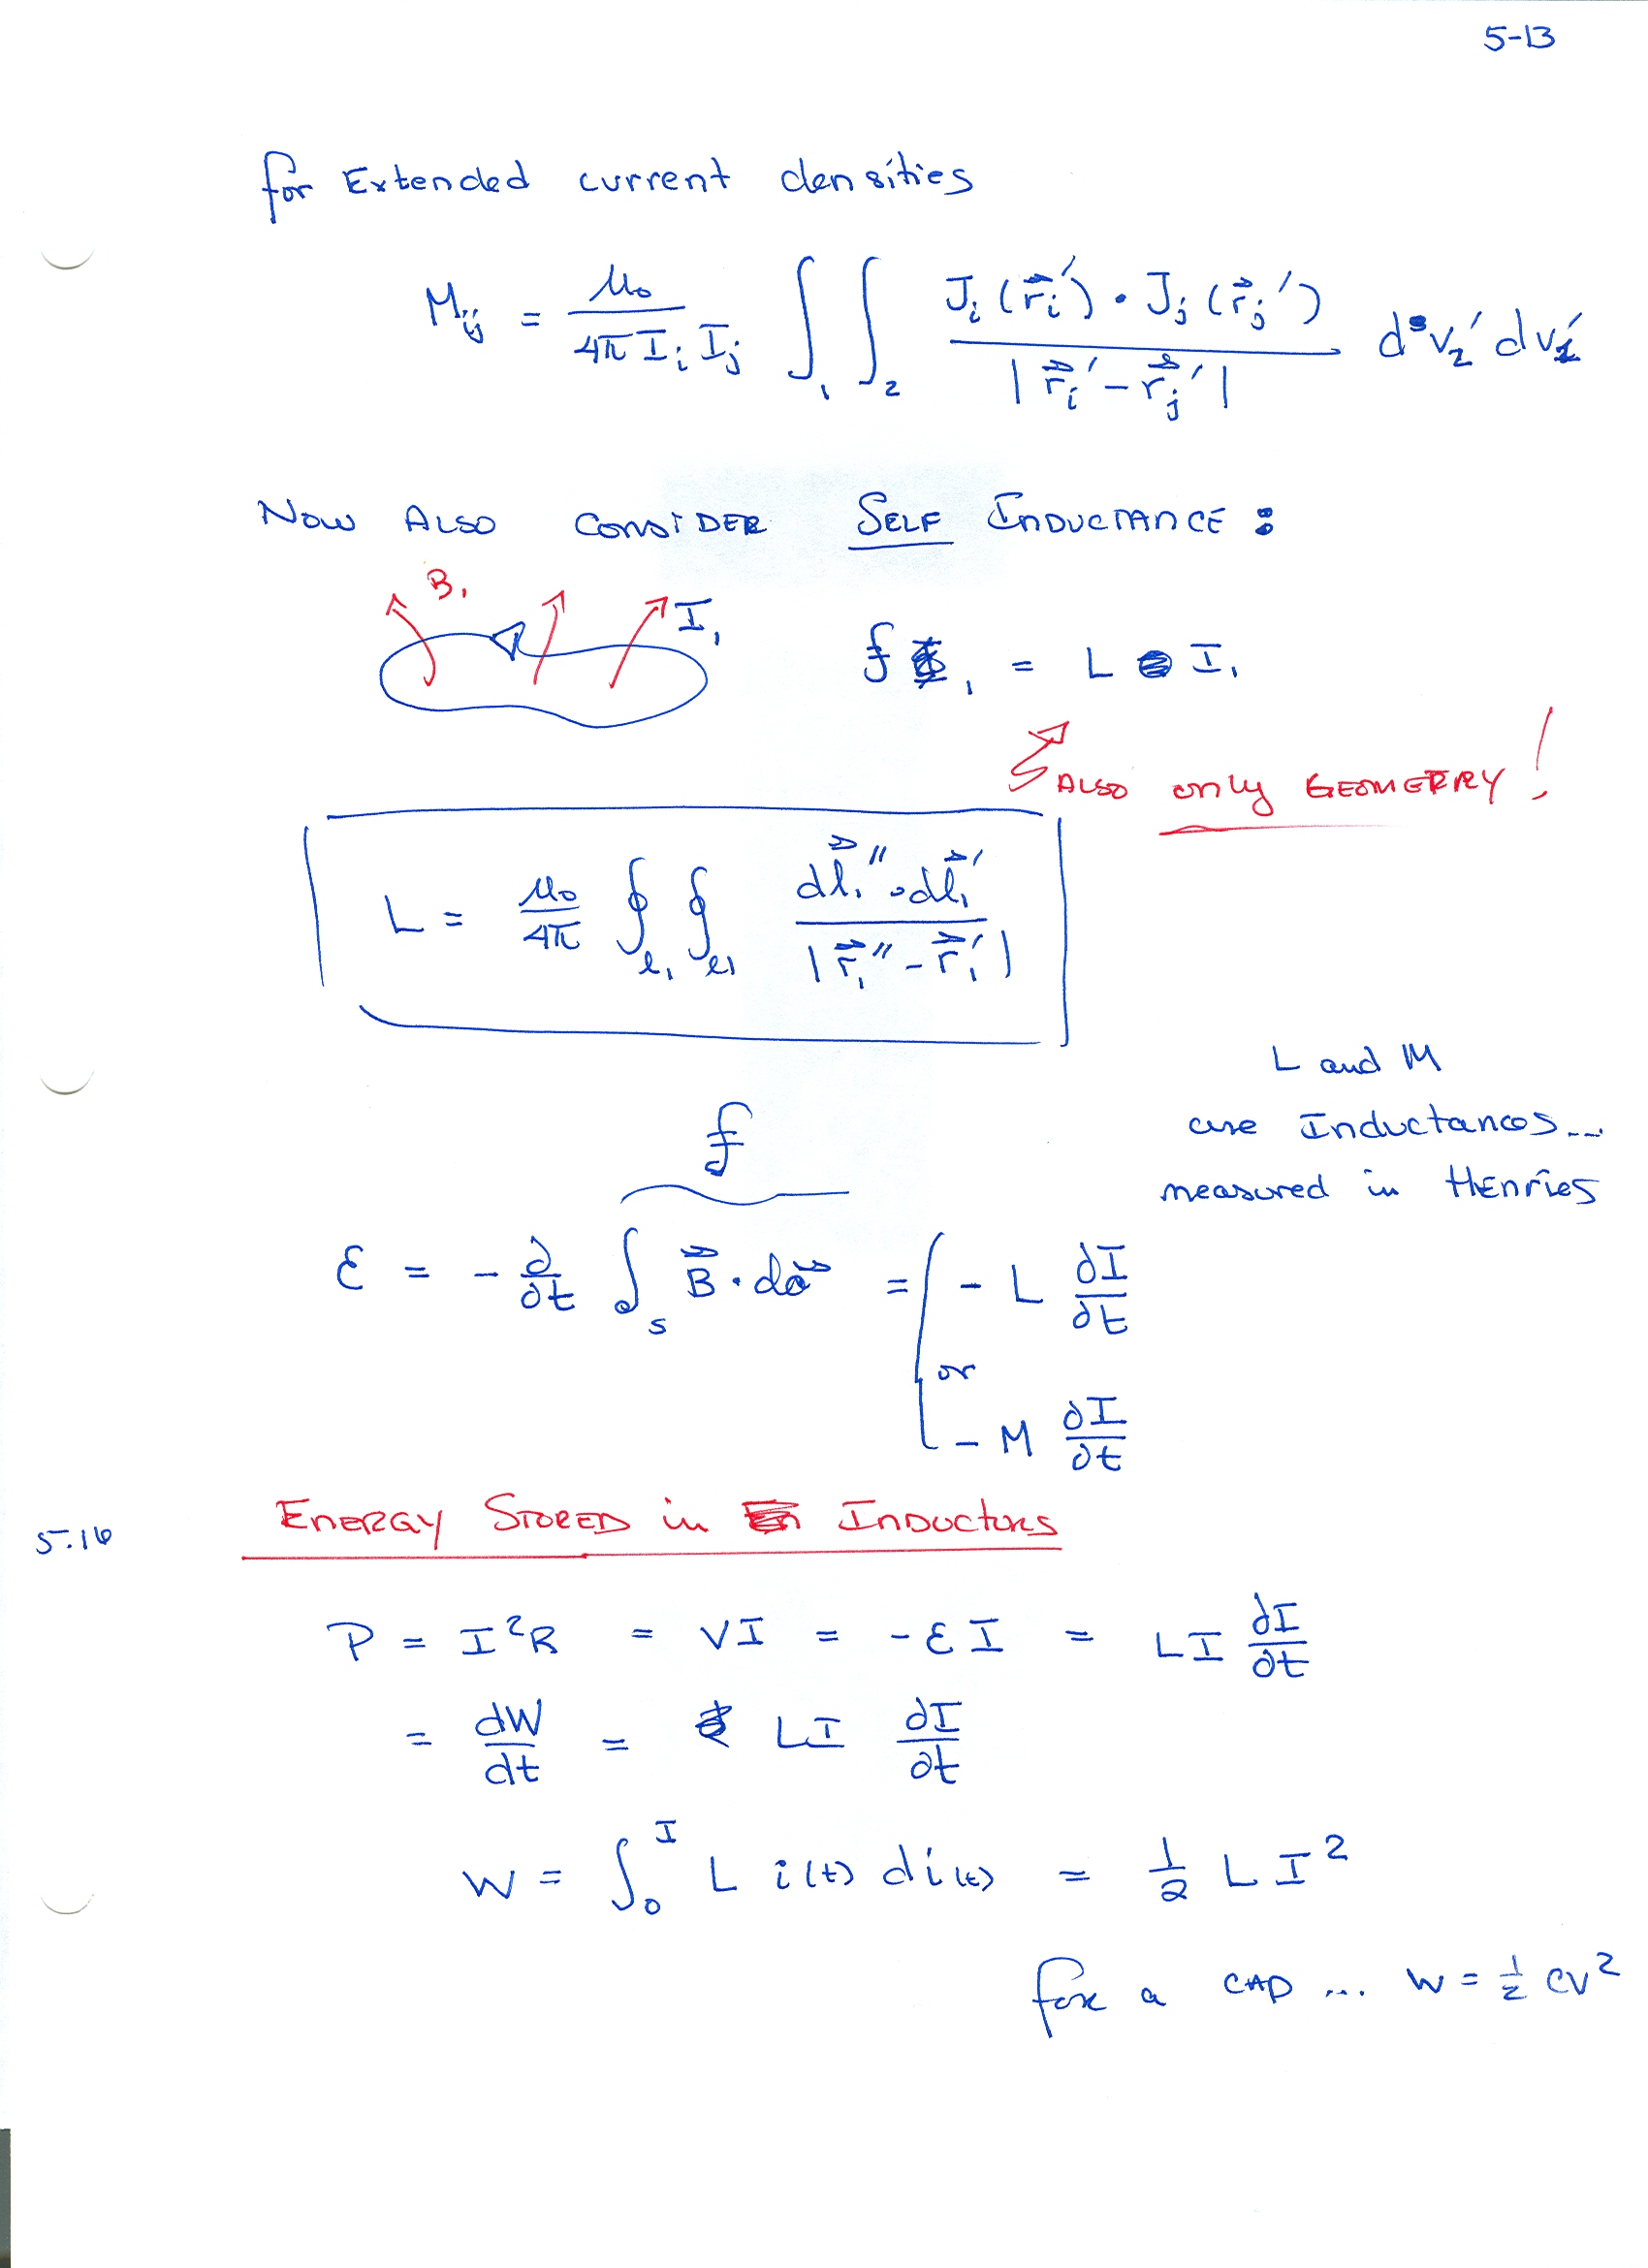 5-13
for Extended current densities
M_ij = μ₀ / (4π I_i I_j) ∫₁ ∫₂ J_i(r⃗_i') · J_j(r⃗_j') / |r⃗_i' - r⃗_j'| dv₂' dv₁'
NOW ALSO CONSIDER SELF INDUCTANCE :
B₁
I₁
f₁ = L I₁
ALSO only GEOMETRY !
L = μ₀/4π ∮_l₁ ∮_l₁ dl⃗₁'' · dl⃗₁' / |r⃗₁'' - r⃗₁'|
L and M
are Inductances...
measured in HENries
f
ℰ = - ∂/∂t ∫_s B⃗ · da⃗ = { - L ∂I/∂t
or
- M ∂I/∂t
5.16
ENERGY STORED in INDUCTORS
P = I²R = VI = -ℰI = LI ∂I/∂t
= dW/dt = LI ∂I/∂t
W = ∫₀^I L i(t) di(t) = 1/2 L I²
for a CAP ... W = 1/2 CV²